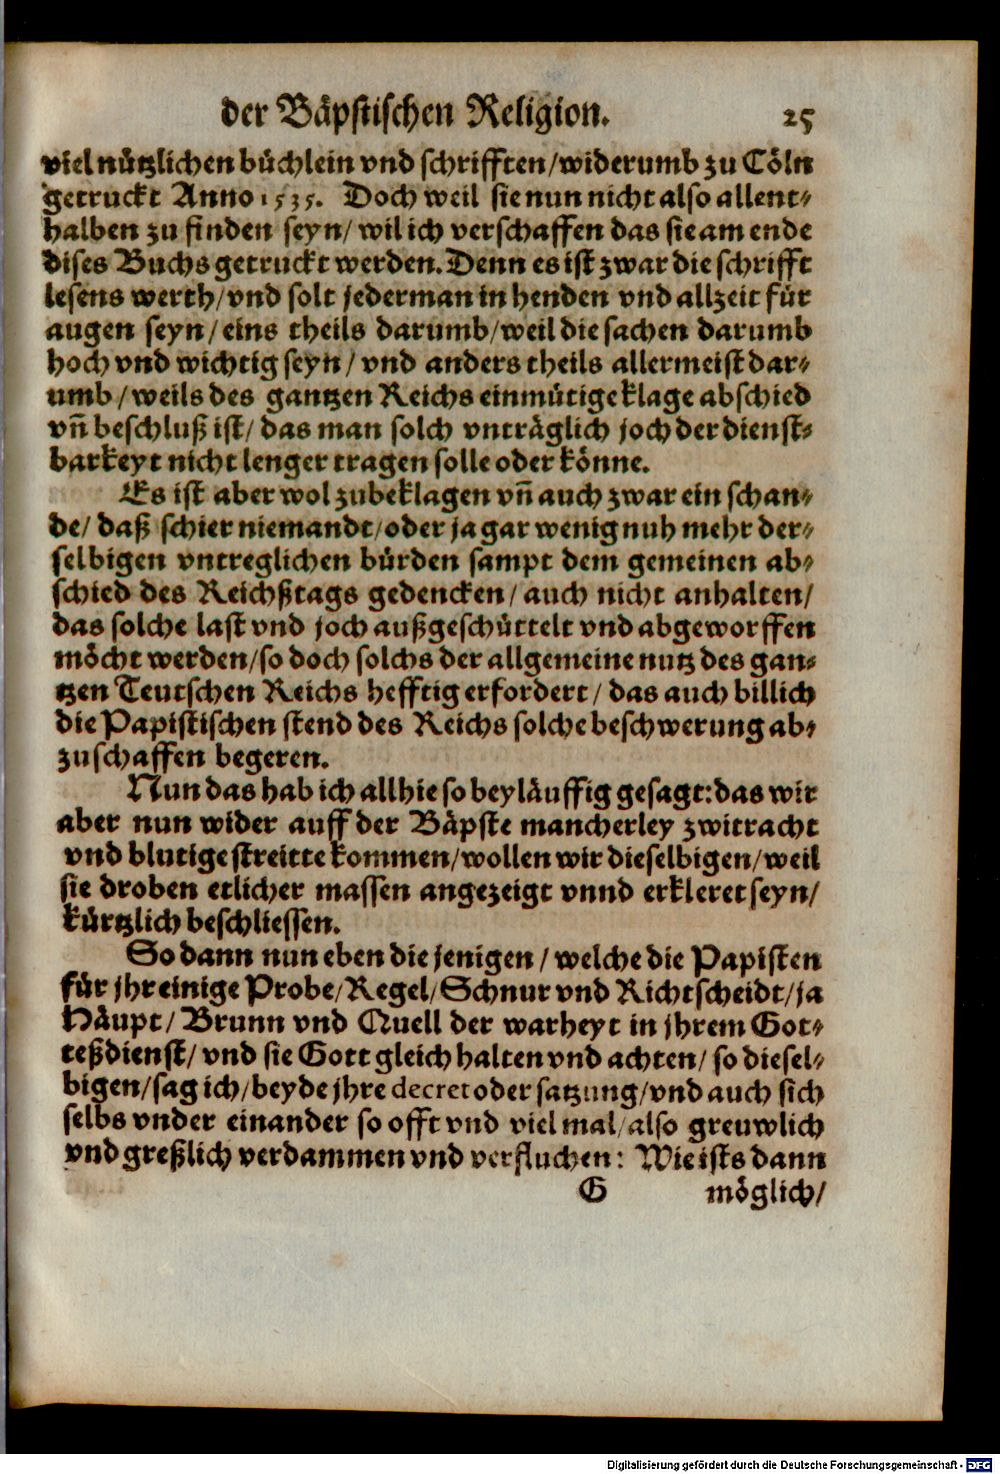 der Bäpstischen Religion. 25
viel nützlichen büchlein vnd schrifften/widerumb zu Cöln
getruckt Anno 1535. Doch weil sie nun nicht also allent⸗
halben zu finden seyn/ wil ich verschaffen das sie am ende
dises Buchs getruckt werden. Denn es ist zwar die schrifft
lesens werth/vnd solt jederman in henden vnd allzeit für
augen seyn/eins theils darumb/weil die sachen darumb
hoch vnd wichtig seyn/ vnd anders theils allermeist dar⸗
umb/weils des gantzen Reichs einmütige klage abschied
vñ beschluß ist/ das man solch vnträglich joch der dienst⸗
barkeyt nicht lenger tragen solle oder könne.
Es ist aber wol zubeklagen vñ auch zwar ein schan⸗
de/ daß schier niemandt/oder ja gar wenig nuh mehr der⸗
selbigen vntreglichen bürden sampt dem gemeinen ab⸗
schied des Reichßtags gedencken/ auch nicht anhalten/
das solche last vnd joch außgeschüttelt vnd abgeworffen
möcht werden/so doch solchs der allgemeine nutz des gan⸗
tzen Teutschen Reichs hefftig erfordert/ das auch billich
die Papistischen stend des Reichs solche beschwerung ab⸗
zuschaffen begeren.
Nun das hab ich allhie so beyläuffig gesagt: das wir
aber nun wider auff der Bäpste mancherley zwitracht
vnd blutige streitte kommen/wollen wir dieselbigen/weil
sie droben etlicher massen angezeigt vnnd erkleret seyn/
kürtzlich beschliessen.
So dann nun eben die jenigen/ welche die Papisten
für jhr einige Probe/Regel/Schnur vnd Richtscheidt/ja
Häupt/ Brunn vnd Quell der warheyt in jhrem Got⸗
teßdienst/ vnd sie Gott gleich halten vnd achten/ so diesel⸗
bigen/sag ich/beyde jhre decret oder satzung/vnd auch sich
selbs vnder einander so offt vnd viel mal/also greuwlich
vnd greßlich verdammen vnd verfluchen: Wie ists dann
G möglich/
Digitalisierung gefördert durch die Deutsche Forschungsgemeinschaft - DFG